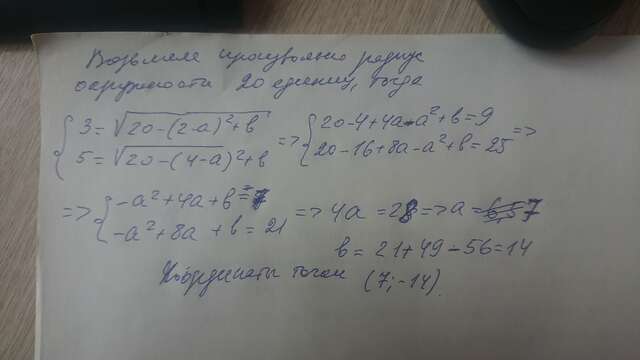 Возьмем произвольно радиус
окружности 20 единиц, тогда
{ 3 = √20-(2-a)²+b => { 20-4+4a-a²+b=9 =>
5 = √20-(4-a)²+b 20-16+8a-a²+b=25
=> { -a²+4a+b=-7 => 4a = 28 => a = 7
-a²+8a+b=21
b = 21+49-56=14
Координаты точки (7;-14).